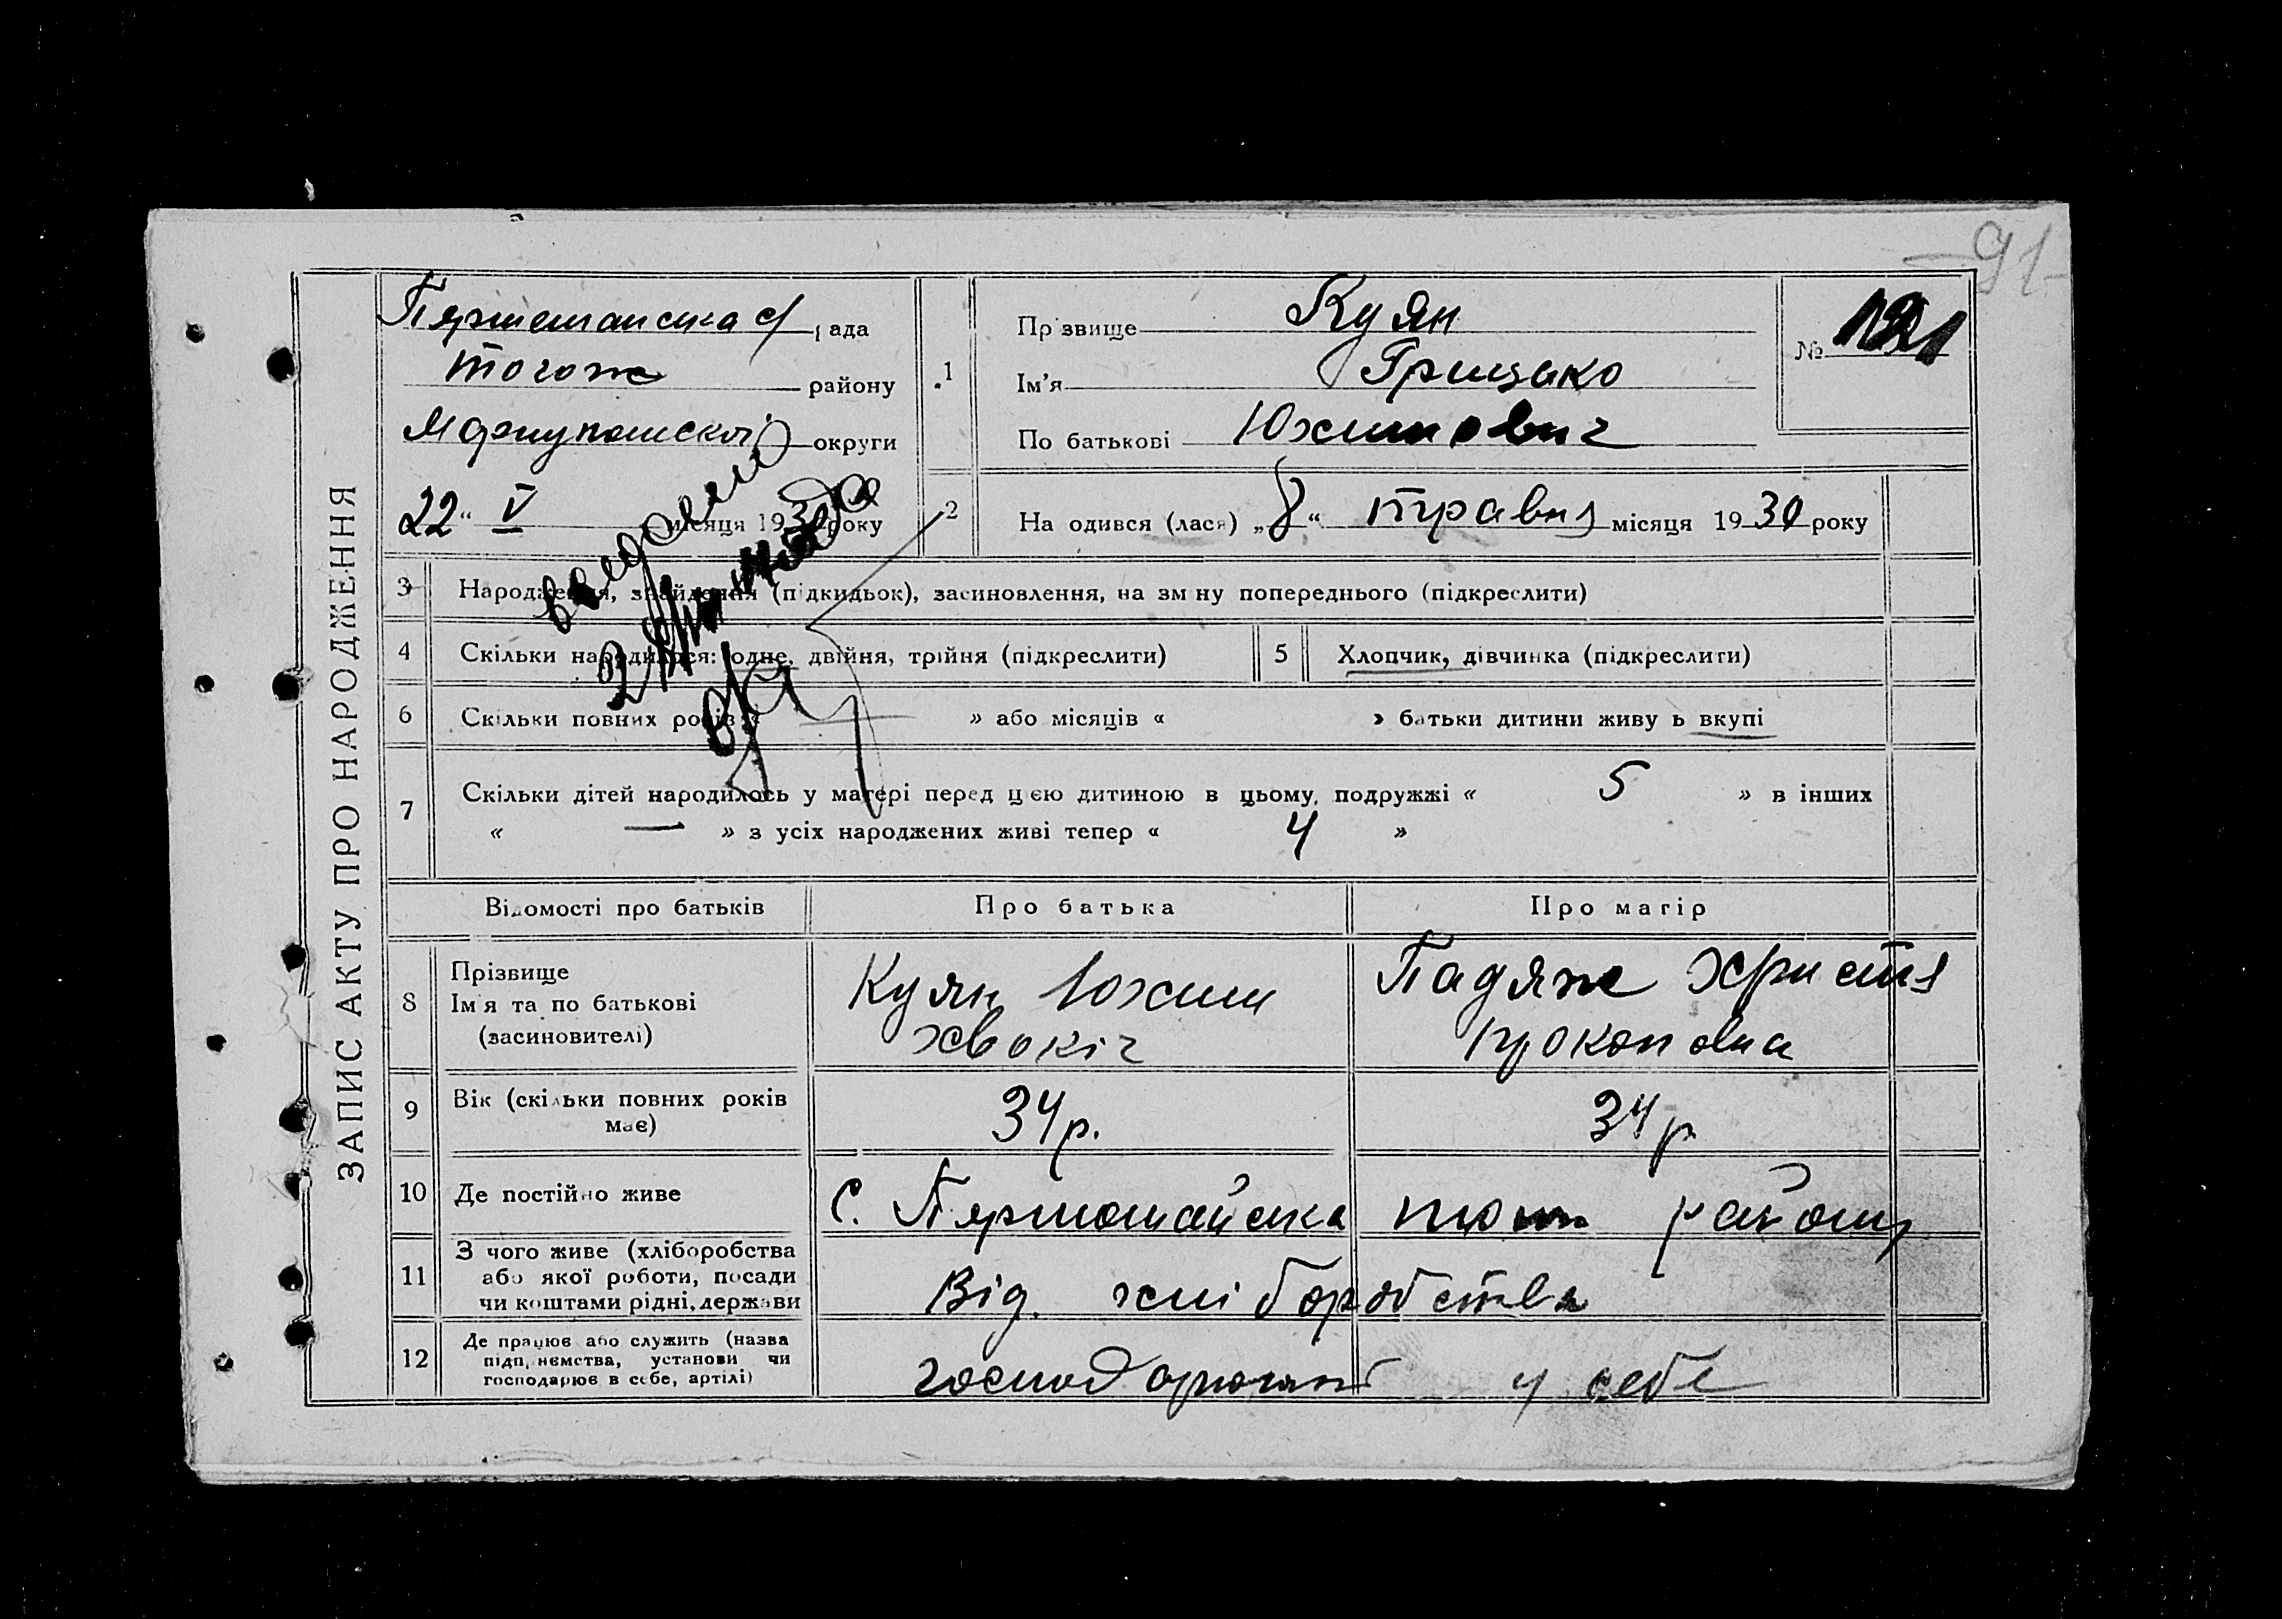 91
ЗАПИС АКТУ ПРО НАРОДЖЕННЯ
Першомайська с/рада
того ж району
округи
22 " V місяця 1930 року
1
Прізвище Куян
Ім'я Грицько
По батькові Юхимович
№ 121
2 На одився (лася) „8“ травня місяця 1930 року
3 Народження, знайдення (підкидьок), засиновлення, на зміну попереднього (підкреслити)
4 Скільки народилося: одне, двійня, трійня (підкреслити) 5 Хлопчик, дівчинка (підкреслити)
6 Скільки повних років « — » або місяців « » батьки дитини живуть вкупі
7 Скільки дітей народилось у матері перед цією дитиною в цьому, подружжі « 5 » в інших
« — » з усіх народжених живі тепер « 4 »
Відомості про батьків Про батька Про матір
8 Прізвище
Ім'я та по батькові
(засиновителі)
Куян Юхим
Хвокіч
Падяж Христя
Прокоповна
9 Вік (скільки повних років
має)
34 р. 34 р
10 Де постійно живе С. Першомайська району
11 З чого живе (хліборобства
або якої роботи, посади
чи коштами рідні, держави
Від. хліборобства
12 Де працює або служить (назва
підприємства, установи чи
господарює в себе, артілі)
господарюють у себе